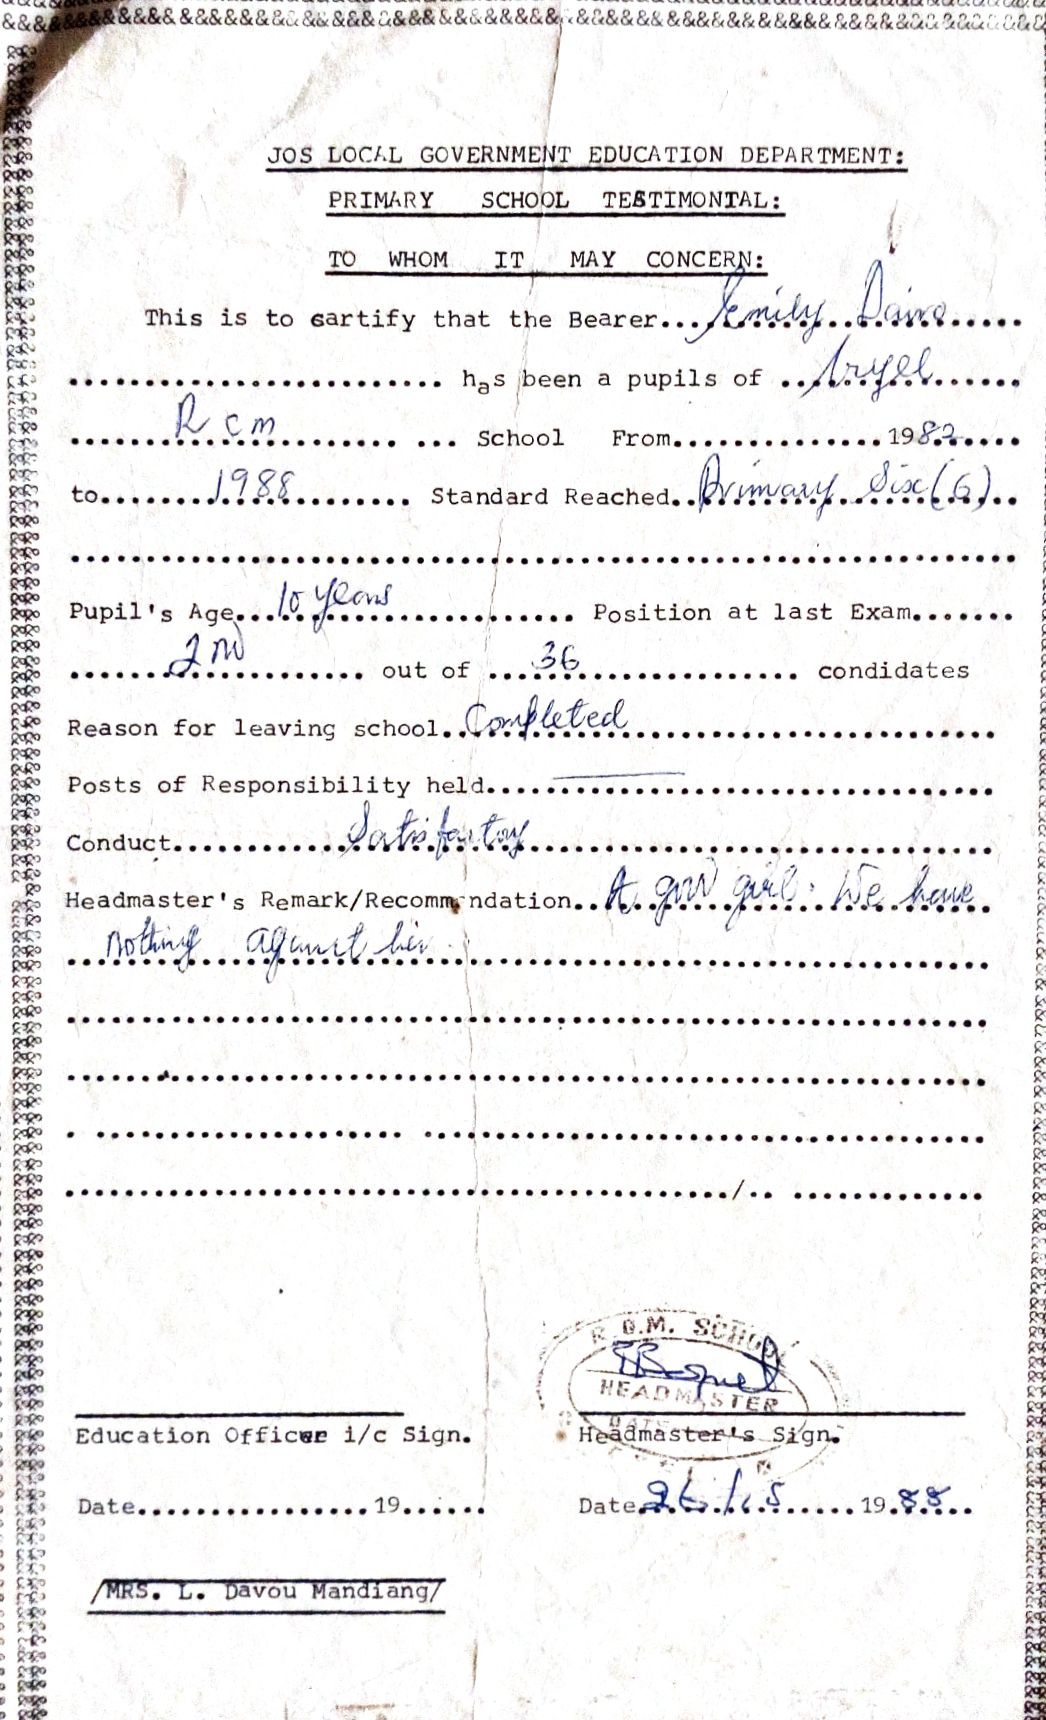 JOS LOCAL GOVERNMENT EDUCATION DEPARTMENT:
PRIMARY SCHOOL TESTIMONIAL:
TO WHOM IT MAY CONCERN:
This is to certify that the Bearer... Emily .....
......................... has been a pupils of .........
R C M ... School From...............1982.....
to........1988......... Standard Reached..Primary Six (6)..
Pupil's Age...10 years................. Position at last Exam.......
2nd out of ....36............... candidates
Reason for leaving school..Completed........................
Posts of Responsibility held..................................
Conduct............Satisfactory...............................
Headmaster's Remark/Recommendation..A good girl. We have
nothing against her.
R.C.M. SCHOOL
HEADMASTER
DATE
Education Officer i/c Sign. Headmaster's Sign.
Date................19...... Date.26/ 5......19.88...
/MRS. L. Davou Mandiang/